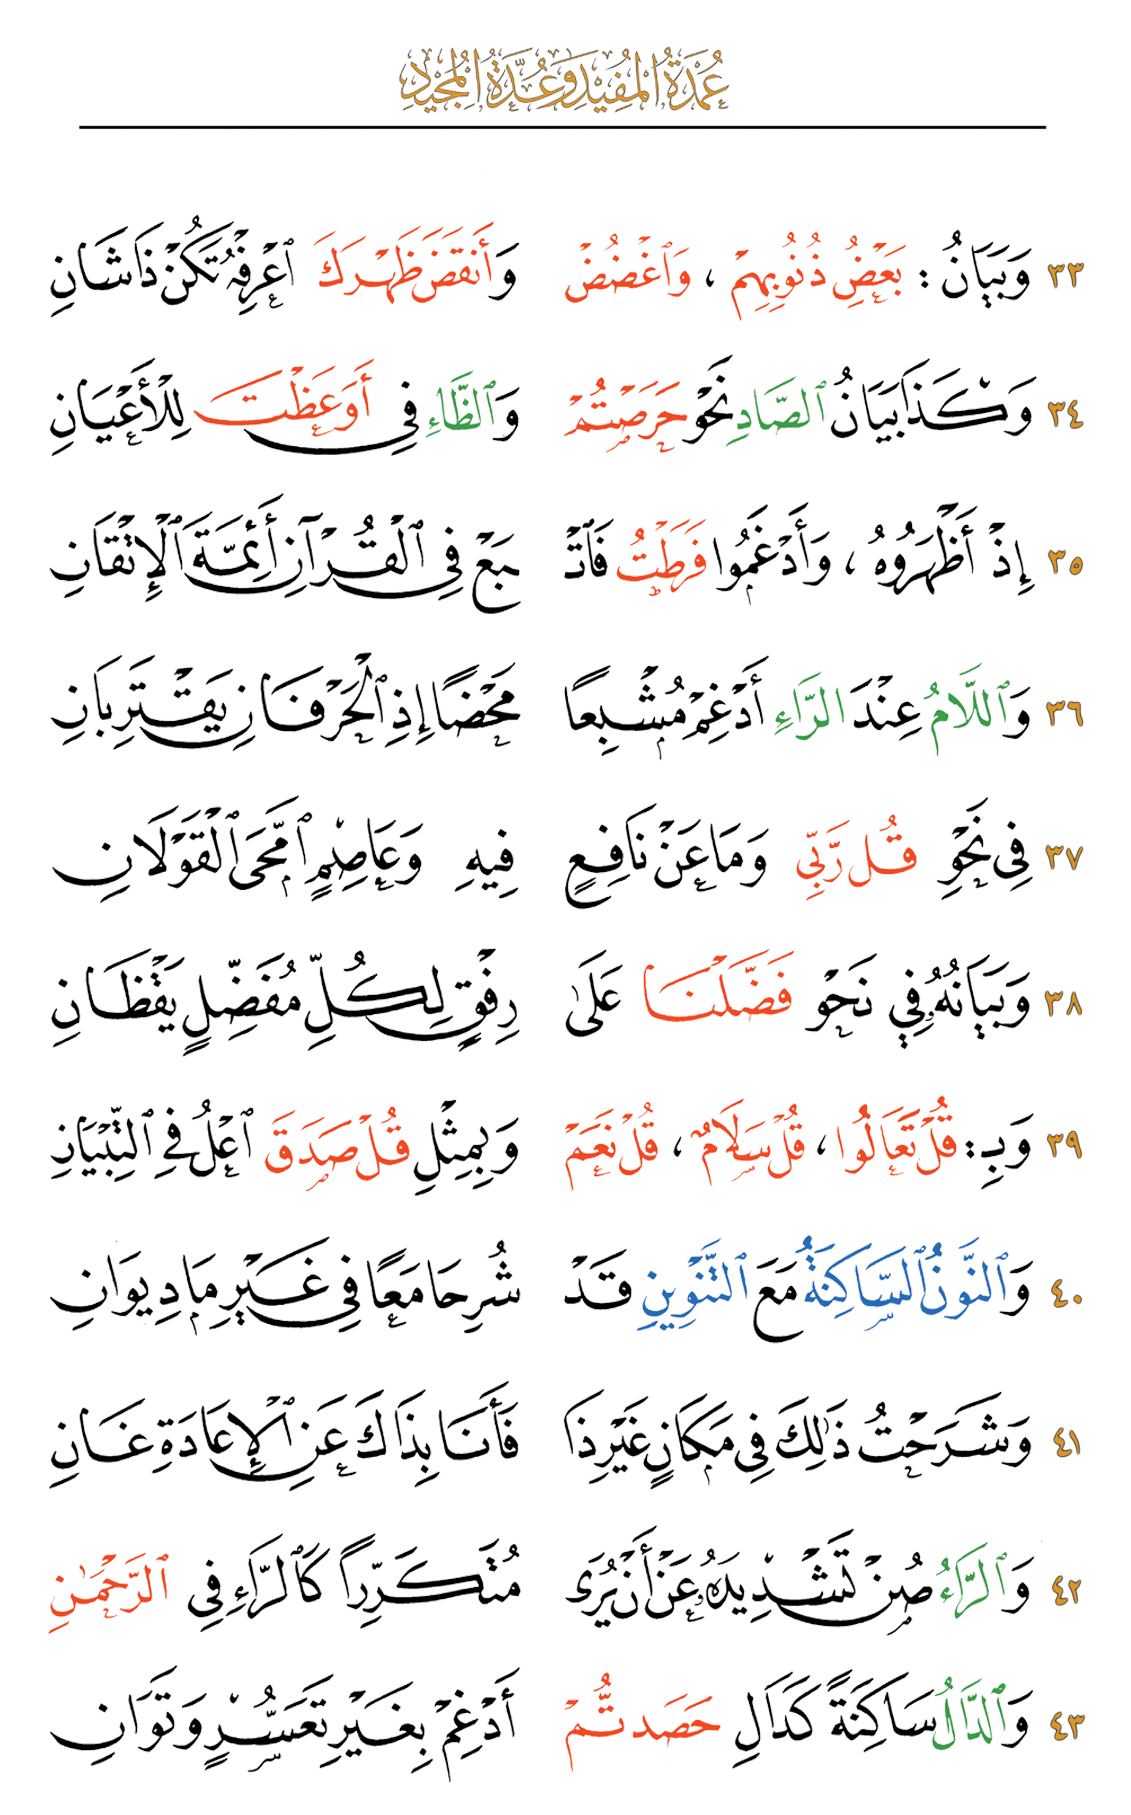 عُمْدَةُ الْمُفِيْدِ وَعُدَّةُ الْمُجِيْدِ
٣٣ وَبَيَانُ : بَعْضِ ذُنُوبِهِمْ ، وَٱغْضُضْ وَأَنقَضَ ظَهْرَكَ ٱعْرِفْهُ تَكُنْ ذَا شَانِ
٣٤ وَكَذَا بَيَانُ ٱلصَّادِ نَحْوُ حَرَصْتُمْ وَٱلظَّاءِ فِي أَوَعَظْتَ لِلْأَعْيَانِ
٣٥ إِذْ أَظْهَرُوهُ ، وَأَدْغَمُوا فَرَطتُ فَٱتْ بَعْ فِي ٱلْقُرْآنِ أَئِمَّةَ ٱلْإِتْقَانِ
٣٦ وَٱللَّامُ عِنْدَ ٱلرَّاءِ أَدْغِمْ مُشْبِعًا مَحْضًا إِذِ ٱلْحَرْفَانِ يَقْتَرِبَانِ
٣٧ فِي نَحْوِ قُل رَّبِّي وَمَا عَنْ نَافِعٍ فِيهِ وَعَاصِمٍ ٱمَّحَى ٱلْقَوْلَانِ
٣٨ وَبَيَانُهُ فِي نَحْوِ فَضَّلْنَا عَلَى رِفْقٍ لِكُلِّ مُفَضِّلٍ يَقْظَانِ
٣٩ وَبِـ: قُلْ تَعَالَوْا ، قُلْ سَلَامٌ ، قُلْ نَعَمْ وَبِمِثْلِ قُلْ صَدَقَ ٱعْلُ فِي ٱلتِّبْيَانِ
٤٠ وَٱلنُّونُ ٱلسَّاكِنَةُ مَعَ ٱلتَّنْوِينِ قَدْ شُرِحَا مَعًا فِي غَيْرِ مَا دِيوَانِ
٤١ وَشَرَحْتُ ذَٰلِكَ فِي مَكَانٍ غَيْرِ ذَا فَأَنَا بِذَاكَ عَنِ ٱلْإِعَادَةِ غَانِ
٤٢ وَٱلرَّاءُ صُنْ تَشْدِيدَهُ عَنْ أَنْ يُرَى مُتَكَرِّراً كَٱلرَّاءِ فِي ٱلرَّحْمَٰنِ
٤٣ وَٱلدَّالُ سَاكِنَةً كَدَالِ حَصَدتُّمْ أَدْغِمْ بِغَيْرِ تَعَسُّرٍ وَتَوَانِ